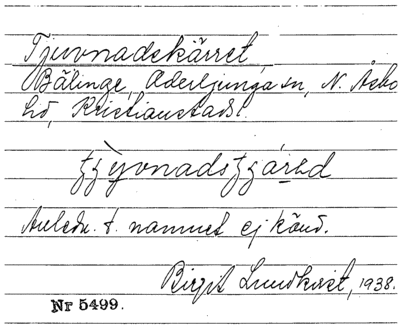 Tjuvnadskärret
Bälinge, Öderljunga sn, N. Åsbo
hd, Kristianstads l.
Anledn. t. namnet ej känd.
Birgit Lundkvist, 1938.
Nr 5499.